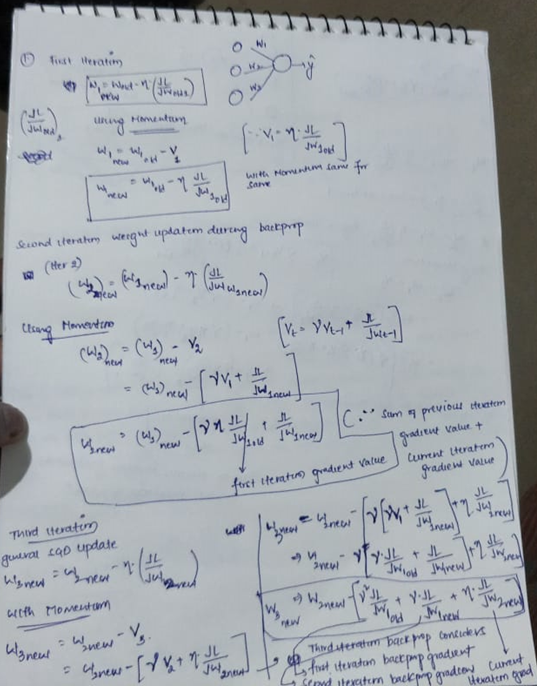 ① First iteration
W₁ new = Wold - η (∂L/∂Wold₁)
W₁
W₂
W₃
ŷ
(∂L/∂Wold)₁
Using Momentum
W₁ new = W₁ old - V₁
[∵ V₁ = η ∂L/∂W₁old]
W₁ new = W₁ old - η ∂L/∂W₁old
with Momentum same for
same
Second iteration weight updation during backprop
(Iter 2)
(W₂)new = (W₁new) - η (∂L/∂W W₁new)
Using Momentum
(W₂)new = (W₁)new - V₂
[Vt = γVt-1 + ∂L/∂Wt-1]
= (W₁)new - [γV₁ + ∂L/∂W₁new]
W₂new = (W₁)new - [γ η ∂L/∂W₁old + ∂L/∂W₁new]
(∵ Sum of previous iteration
gradient value +
Current iteration
gradient value)
first iteration gradient value
Third iteration
general SGD update
W₃new = W₂new - η (∂L/∂W₂new)
with Momentum
W₃new = W₂new - V₃.
= W₂new - [γ V₂ + η ∂L/∂W₂new]
W₃new = W₂new - [γ[γV₁ + ∂L/∂W₁new] + η ∂L/∂W₂new]
⇒ W₂new - γ[γ ∂L/∂W₁old + ∂L/∂W₁new] + η ∂L/∂W₂new]
W₃ new ⇒ W₂new - [γ² ∂L/∂W₁old + γ ∂L/∂W₁new + η ∂L/∂W₂new]
Third iteration backprop considers
first iteration backprop gradient
second iteration backprop gradient
Current
iteration grad